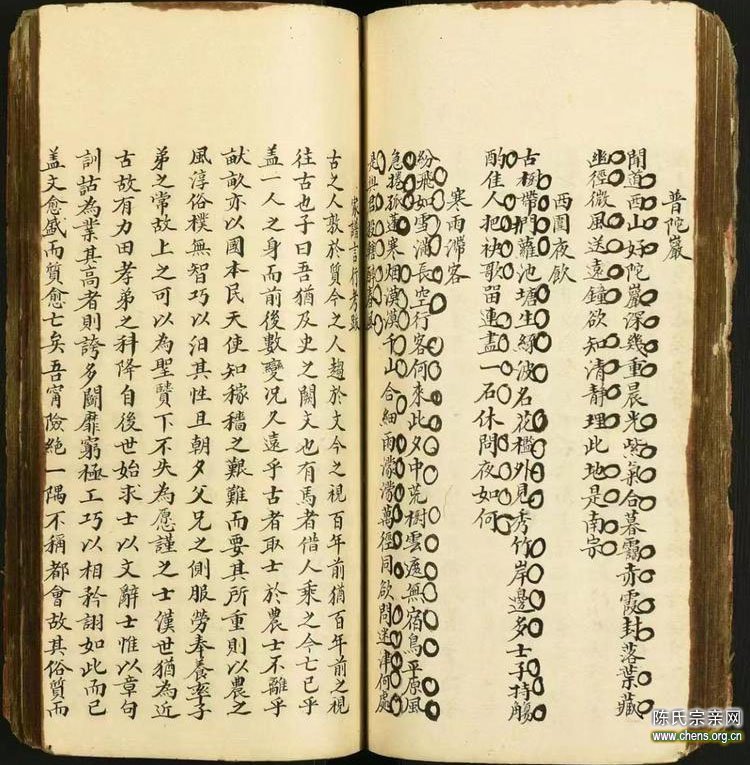 普陀巖
聞道西山好陀巖深幾重晨光紫氣合暮靄赤霞封落葉藏
幽徑微風送遠鐘欲知清靜理此地是南宗
西園夜飲
古樹帶門蘿池塘生綠波名花檻外見秀竹岸邊多士子持觴
酌佳人把袂歌留連盡一石休問夜如何
寒雨滯客
紛飛如雪滿長空行客何來此夕中荒樹雲遮無宿鳥平原風
急捲孤蓬寒烟漠漠千山合細雨濛濛萬徑同欲問迷津何處
家譜言行考
古之人敦於質今之人趨於文今之視百年前猶百年前之視
往古也子曰吾猶及史之闕文也有馬者借人乘之今亡已乎
蓋一人之身而前後數變況久遠乎古者取士於農士不離乎
畎畝亦以國本民天使知稼穡之艱難而要其所重則以農之
風淳俗樸無智巧以汨其性且朝夕父兄之側服勞奉養率子
弟之常故上之可以為聖賢下不失為愿謹之士漢世猶為近
古故有力田孝弟之科降自後世始求士以文辭士惟以章句
訓詁為業其高者則誇多鬭靡窮極工巧以相矜詡如此而已
盖文愈盛而質愈亡矣吾甯險絕一隅不稱都會故其俗質而
陈氏宗亲网
www.chens.org.cn